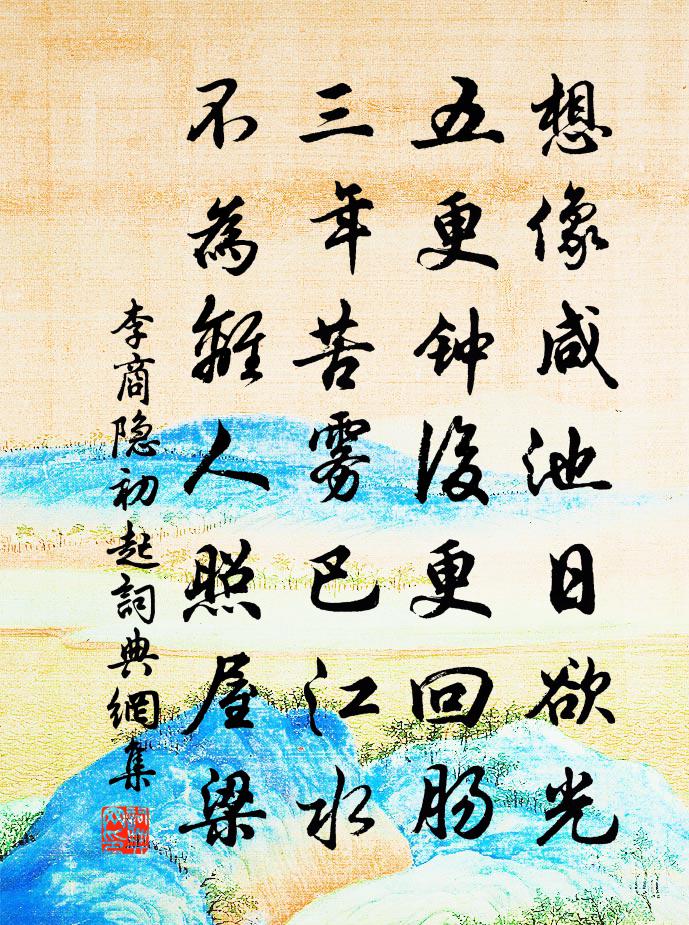 想像咸池日欲光
五更钟後更回肠
三年苦雾巴江水
不為離人照屋梁
李商隐初起詞典網集